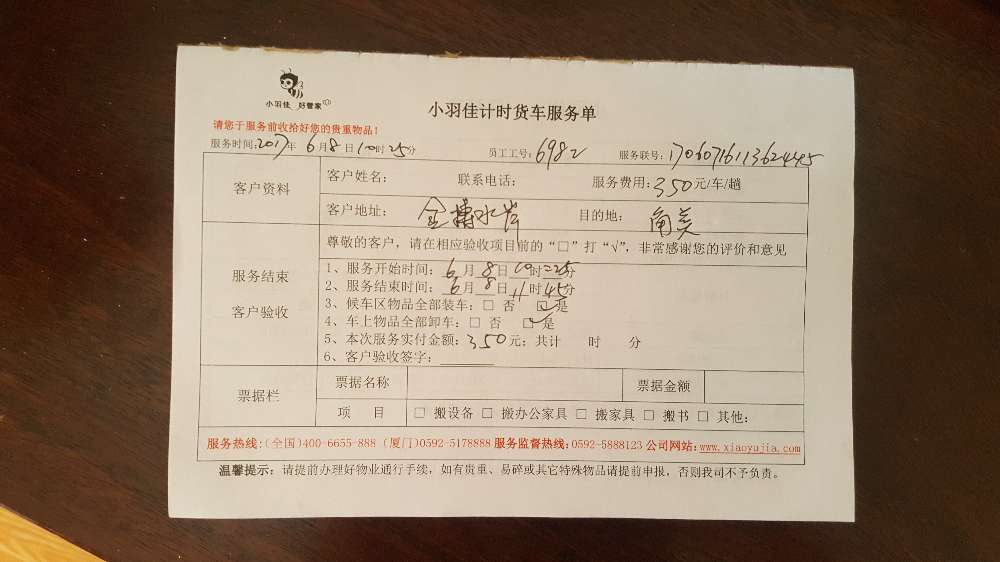 小羽佳 好管家
小羽佳计时货车服务单
请您于服务前收拾好您的贵重物品!
服务时间:2017年 6月8日10时25分 员工工号:6982 服务联号:17060716113624445
客户资料
客户姓名: 联系电话: 服务费用:350元/车/趟
客户地址: 金搏水岸 目的地: 角美
服务结束
客户验收
尊敬的客户,请在相应验收项目前的“□”打“√”,非常感谢您的评价和意见
1、服务开始时间:6月8日10时25分
2、服务结束时间:6月8日11时45分
3、候车区物品全部装车:□ 否 ☑是
4、车上物品全部卸车:□ 否 ☑是
5、本次服务实付金额:350元;共计 时 分
6、客户验收签字:
票据栏
票据名称 票据金额
项 目 □ 搬设备 □ 搬办公家具 □ 搬家具 □ 搬书 □ 其他:
服务热线:(全国)400-6655-888 (厦门)0592-5178888 服务监督热线:0592-5888123 公司网站:www.xiaoyujia.com
温馨提示:请提前办理好物业通行手续,如有贵重、易碎或其它特殊物品请提前申报,否则我司不予负责。